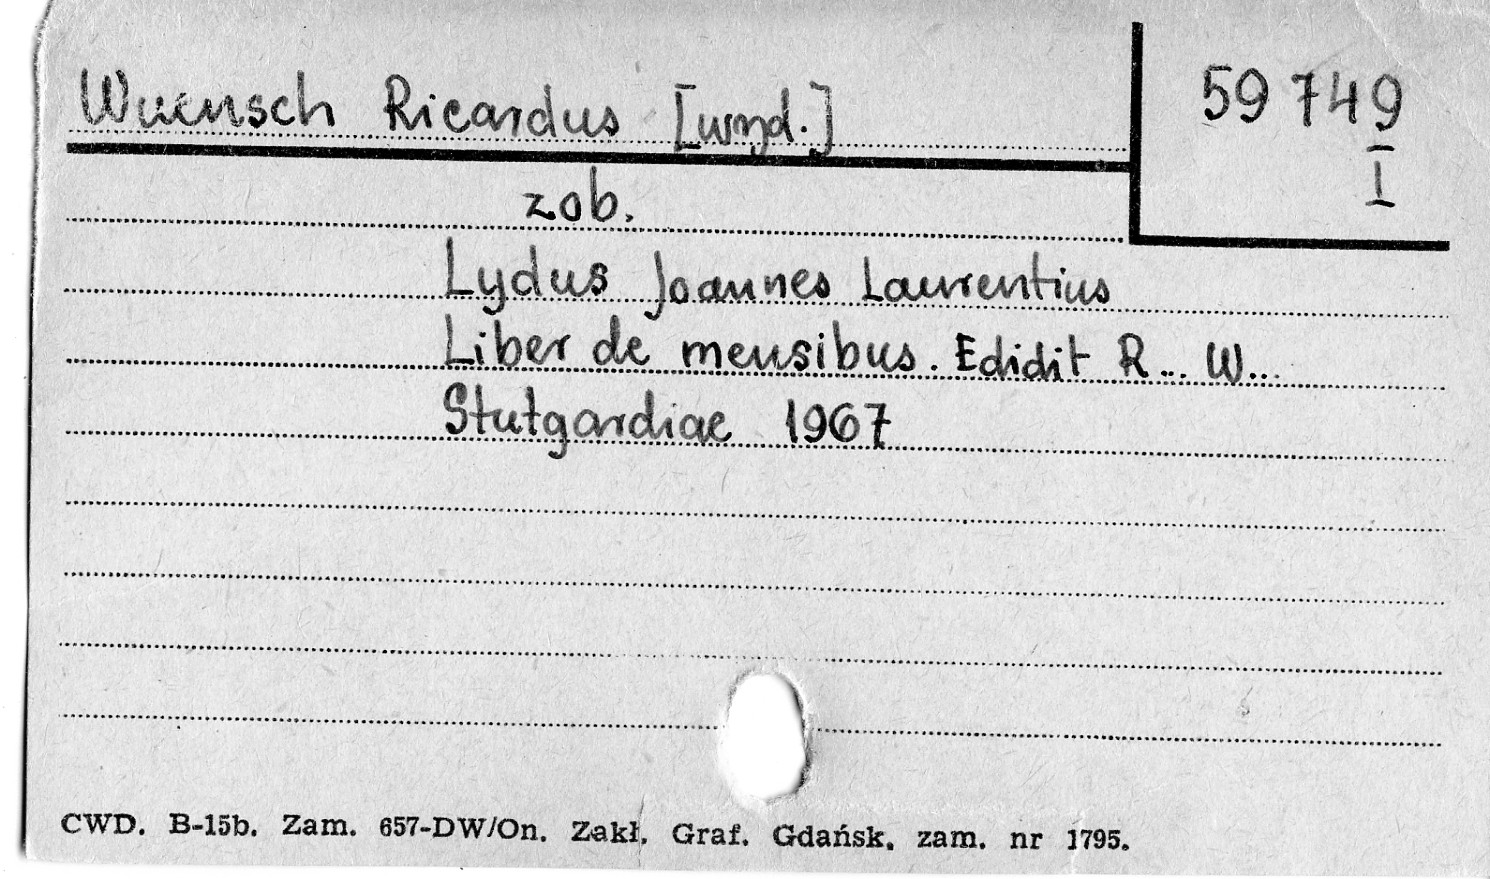 Wuensch Ricardus [wyd.]
59 749
I
zob.
Lydus Joannes Laurentius
Liber de mensibus. Edidit R... W...
Stutgardiae 1967
CWD. B-15b. Zam. 657-DW/On. Zakł. Graf. Gdańsk, zam. nr 1795.